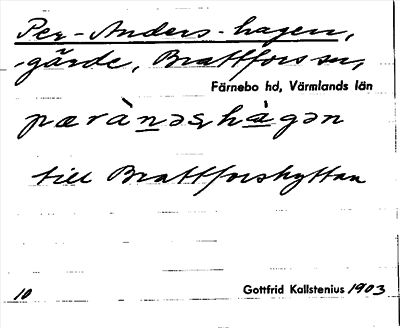 Per-Anders-hagen,
gärde, Brattfors sn,
Färnebo hd, Värmlands län
pæràṉəsh̀a̱gən
till Brattforshyttan
10
Gottfrid Kallstenius 1903